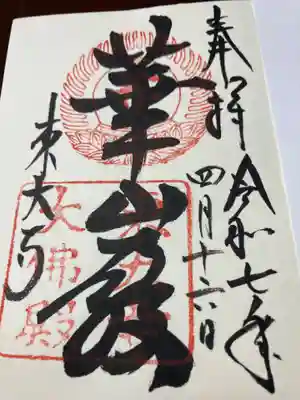 奉拝
令和七年
四月十六日
華厳
東大寺
大佛殿